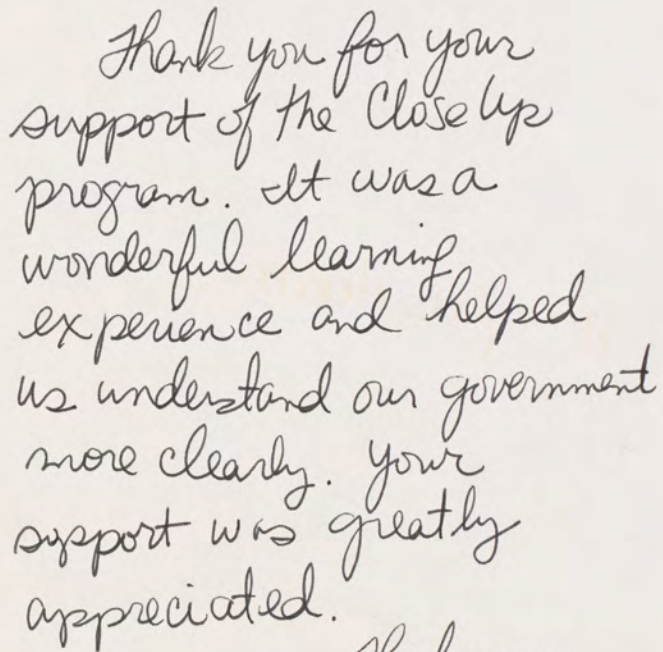 Thank you for your
support of the Close Up
program. It was a
wonderful learning
experience and helped
us understand our government
more clearly. Your
support was greatly
appreciated.